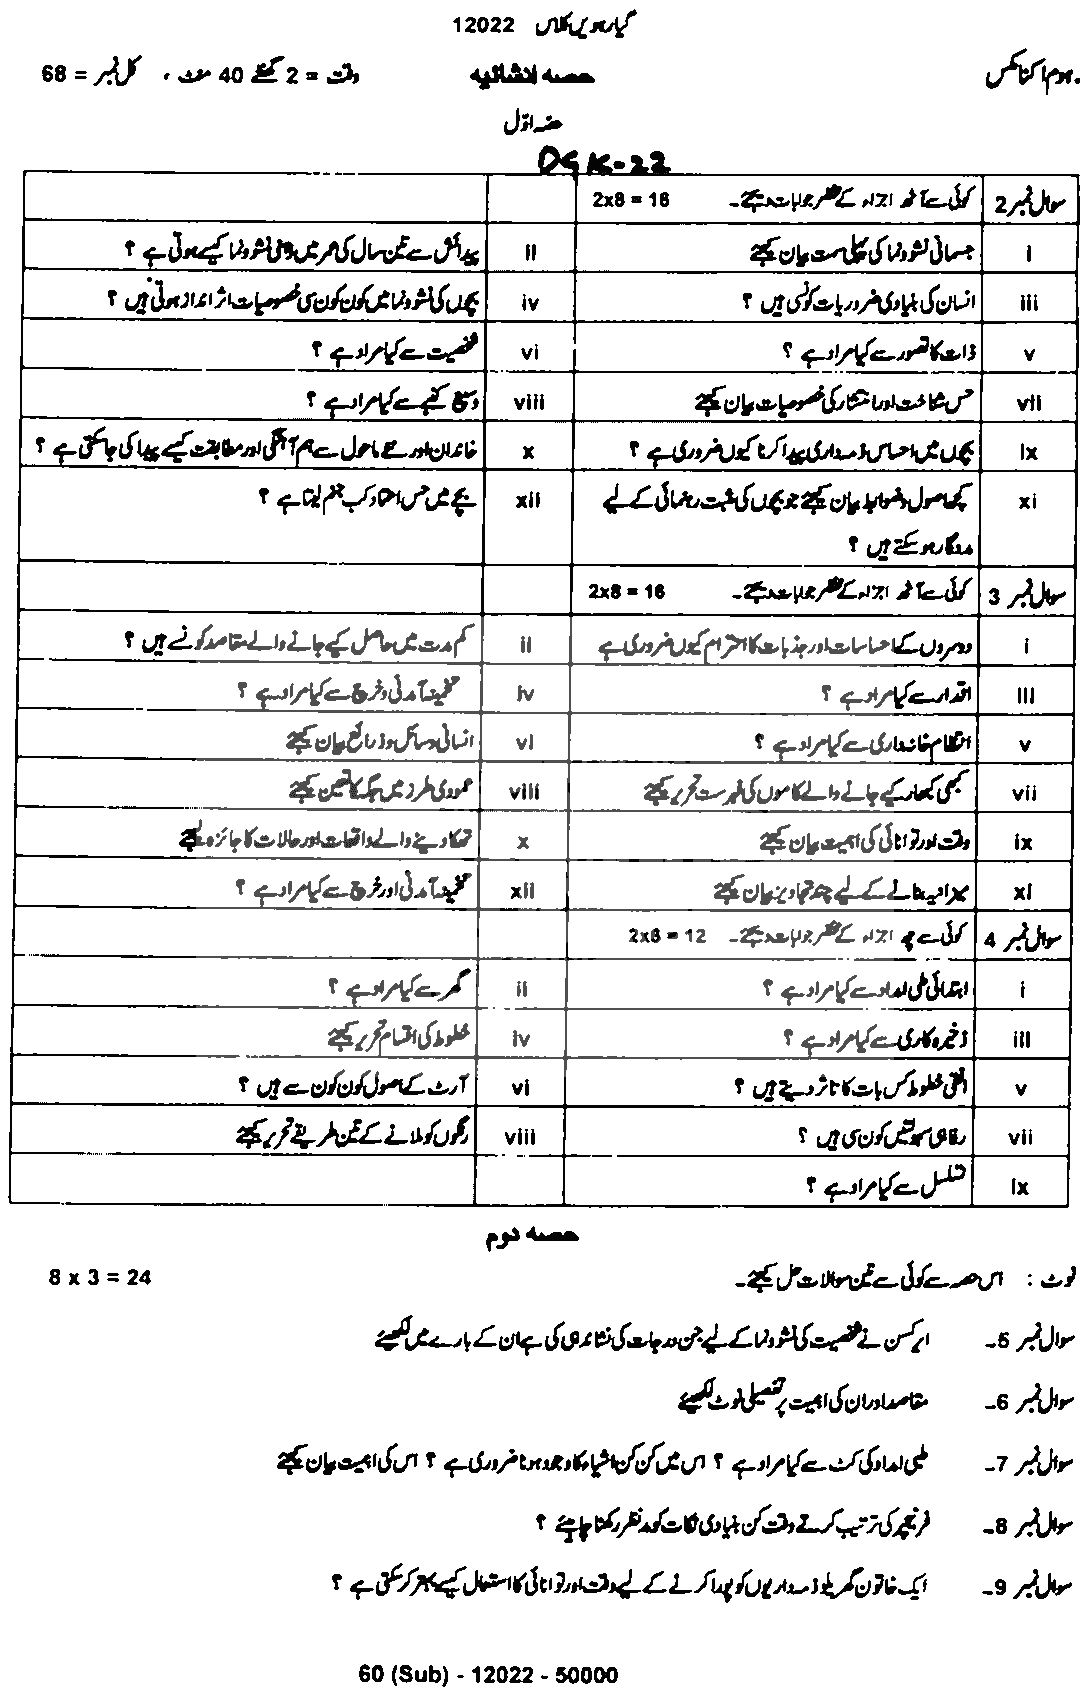 گیارہویں کلاس 12022
ہوم اکنامکس حصہ انشائیہ وقت = 2 گھنٹے 40 منٹ ، کل نمبر = 68
حصہ اوّل
DGK-22
سوال نمبر 2 کوئی سے آٹھ اجزاء کے مختصر جوابات دیجئے۔ 2x8 = 16
i جسمانی نشوونما کی پہلی سمت بیان کیجئے
ii پیدائش سے تین سال کی عمر میں ذہنی نشوونما کیسے ہوتی ہے ؟
iii انسان کی بنیادی ضروریات کونسی ہیں ؟
iv بچوں کی نشوونما میں کون کون سی خصوصیات اثر انداز ہوتی ہیں ؟
v ذات کا تصور سے کیا مراد ہے ؟
vi شخصیت سے کیا مراد ہے ؟
vii حس شناخت اور انتشار کی خصوصیات بیان کیجئے
viii وسیع کنبے سے کیا مراد ہے ؟
ix بچوں میں احساس ذمہ داری پیدا کرنا کیوں ضروری ہے ؟
x خاندان اور نئے ماحول سے ہم آہنگی اور مطابقت کیسے پیدا کی جا سکتی ہے ؟
xi کچھ اصول و ضوابط بیان کیجئے جو بچوں کی مثبت رہنمائی کے لیے
مددگار ہو سکتے ہیں ؟
xii بچے میں حس اعتماد کب جنم لیتا ہے ؟
سوال نمبر 3 کوئی سے آٹھ اجزاء کے مختصر جوابات دیجئے۔ 2x8 = 16
i دوسروں کے احساسات اور جذبات کا احترام کیوں ضروری ہے
ii کم مدت میں حاصل کیے جانے والے مقاصد کونسے ہیں ؟
iii اقدار سے کیا مراد ہے ؟
iv تخمینہ آمدنی و خرچ سے کیا مراد ہے ؟
v انتظام خانہ داری سے کیا مراد ہے ؟
vi انسانی وسائل و ذرائع بیان کیجئے
vii کبھی کبھار کیے جانے والے کاموں کی فہرست تحریر کیجئے
viii عمودی طرز میں جگہ کا تعین کیجئے
ix وقت اور توانائی کی اہمیت بیان کیجئے
x تھکا دینے والے واقعات اور حالات کا جائزہ لیجئے
xi میزانیہ بنانے کے لیے چند تجاویز بیان کیجئے
xii تخمینہ آمدنی اور خرچ سے کیا مراد ہے ؟
سوال نمبر 4 کوئی سے چھ اجزاء کے مختصر جوابات دیجئے۔ 2x6 = 12
i ابتدائی طبی امداد سے کیا مراد ہے ؟
ii گھر سے کیا مراد ہے ؟
iii ذخیرہ کاری سے کیا مراد ہے ؟
iv خطوط کی اقسام تحریر کیجئے
v افقی خطوط کس بات کا تاثر دیتے ہیں ؟
vi آرٹ کے اصول کون کون سے ہیں ؟
vii رفاہی سہولتیں کون سی ہیں ؟
viii رنگوں کو ملانے کے تین طریقے تحریر کیجئے
ix تسلسل سے کیا مراد ہے ؟
حصہ دوم
نوٹ : اس حصہ سے کوئی سے تین سوالات حل کیجئے۔ 8 x 3 = 24
سوال نمبر 5۔ ایرکسن نے شخصیت کی نشوونما کے لیے جن درجات کی نشاندہی کی ہے ان کے بارے میں لکھیئے
سوال نمبر 6۔ مقاصد اور ان کی اہمیت پر تفصیلی نوٹ لکھیئے
سوال نمبر 7۔ طبی امداد کی کٹ سے کیا مراد ہے ؟ اس میں کن کن اشیاء کا وجود ہونا ضروری ہے ؟ اس کی اہمیت بیان کیجئے
سوال نمبر 8۔ فرنیچر کی ترتیب کرتے وقت کن بنیادی نکات کو مدنظر رکھنا چاہئے ؟
سوال نمبر 9۔ ایک خاتون گھریلو ذمہ داریوں کو پورا کرنے کے لیے وقت اور توانائی کا استعمال کیسے بہتر کر سکتی ہے ؟
60 (Sub) - 12022 - 50000